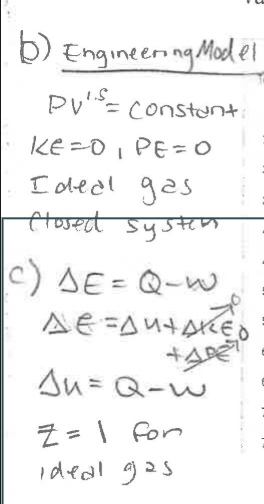 b) Engineering Model
PV^1.5 = constant
KE=0, PE=0
Ideal gas
Closed system
c) ΔE = Q-W
ΔE = Δu + ΔKE 0
+ ΔPE 0
Δu = Q-W
Z = 1 for
ideal gas